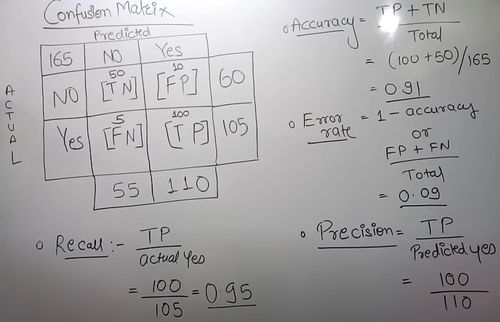 Confusion Matrix
Predicted
165 NO Yes
ACTUAL
50 10
NO [TN] [FP] 60
5 100
Yes [FN] [TP] 105
55 110
Recall :- TP
actual Yes
= 100
105
= 0.95
Accuracy = TP + TN
Total
= (100 + 50)/165
= 0.91
Error rate = 1 - accuracy
or
FP + FN
Total
= 0.09
Precision = TP
Predicted yes
= 100
110